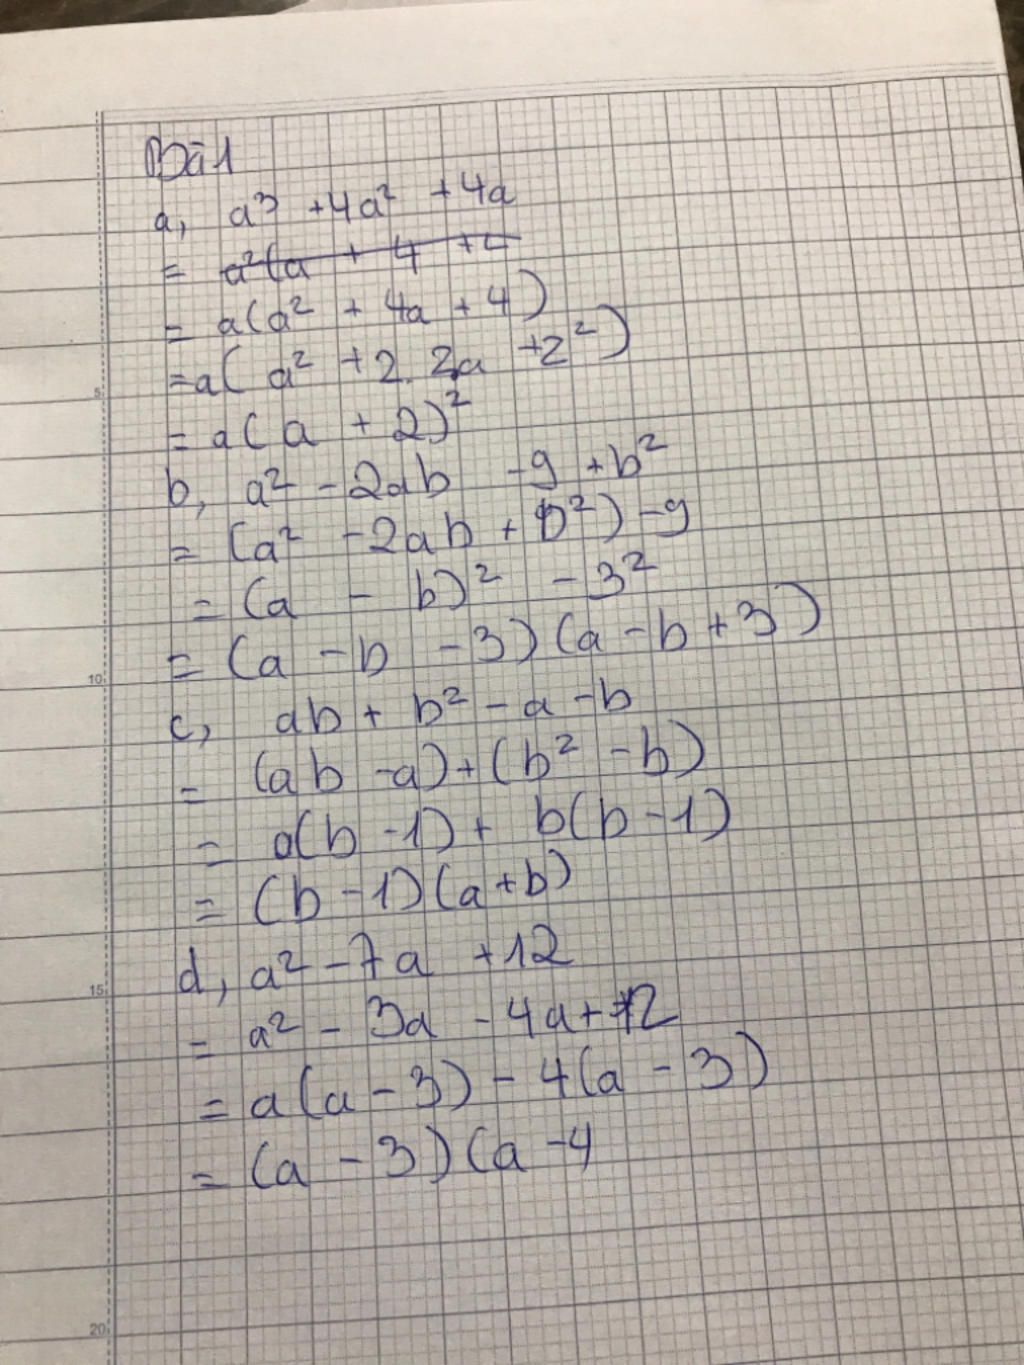 Bài 1
a, a³ + 4a² + 4a
= a²(a + 4 + 4
= a(a² + 4a + 4)
= a(a² + 2. 2a + 2²)
= a(a + 2)²
b, a² - 2ab - 9 + b²
= (a² - 2ab + b²) - 9
= (a - b)² - 3²
= (a - b - 3)(a - b + 3)
c, ab + b² - a - b
= (ab - a) + (b² - b)
= a(b - 1) + b(b - 1)
= (b - 1)(a + b)
d, a² - 7a + 12
= a² - 3a - 4a + 12
= a(a - 3) - 4(a - 3)
= (a - 3)(a - 4
5
10
15
20